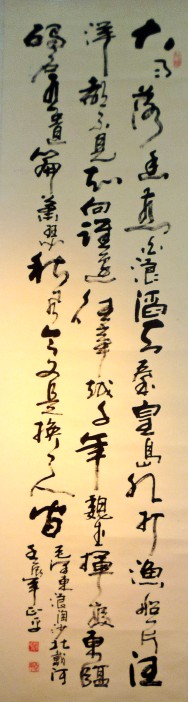 大雨落幽燕白浪滔天秦皇島外打漁船一片汪
洋都不見知向誰邊往事越千年魏武揮鞭東臨
碣石有遺篇蕭瑟秋風今又是換了人間
毛澤東浪淘沙北戴河